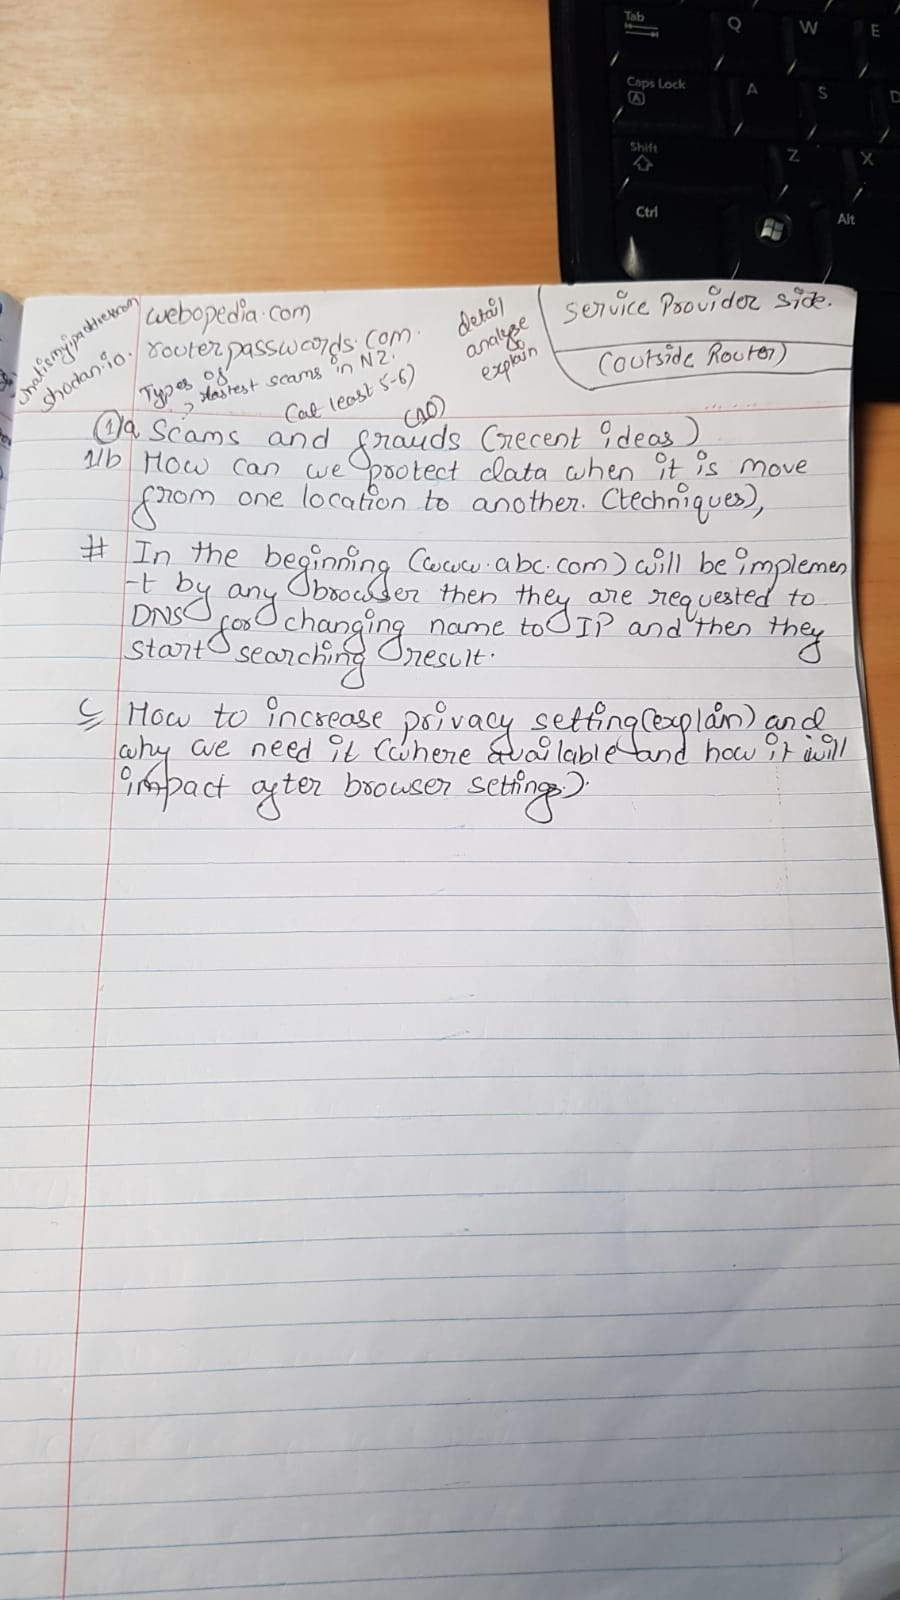 Tab
Q W E
Caps Lock
A
A S D
Shift
Z X
Ctrl
Alt
webopedia.com
routerpasswords.com.
shodan.io.
Types of
latest scams in NZ.
(at least 5-6)
detail
analyse
explain
Service Provider side.
(outside Router)
(10)
1/a Scams and frauds (recent ideas)
1/b How can we protect data when it is move
from one location to another. (techniques),
# In the beginning (www.abc.com) will be implemen
-t by any browser then they are requested to
DNS for changing name to IP and then they
start searching result.
C How to increase privacy setting (explain) and
why we need it (where available and how it will
impact after browser settings).